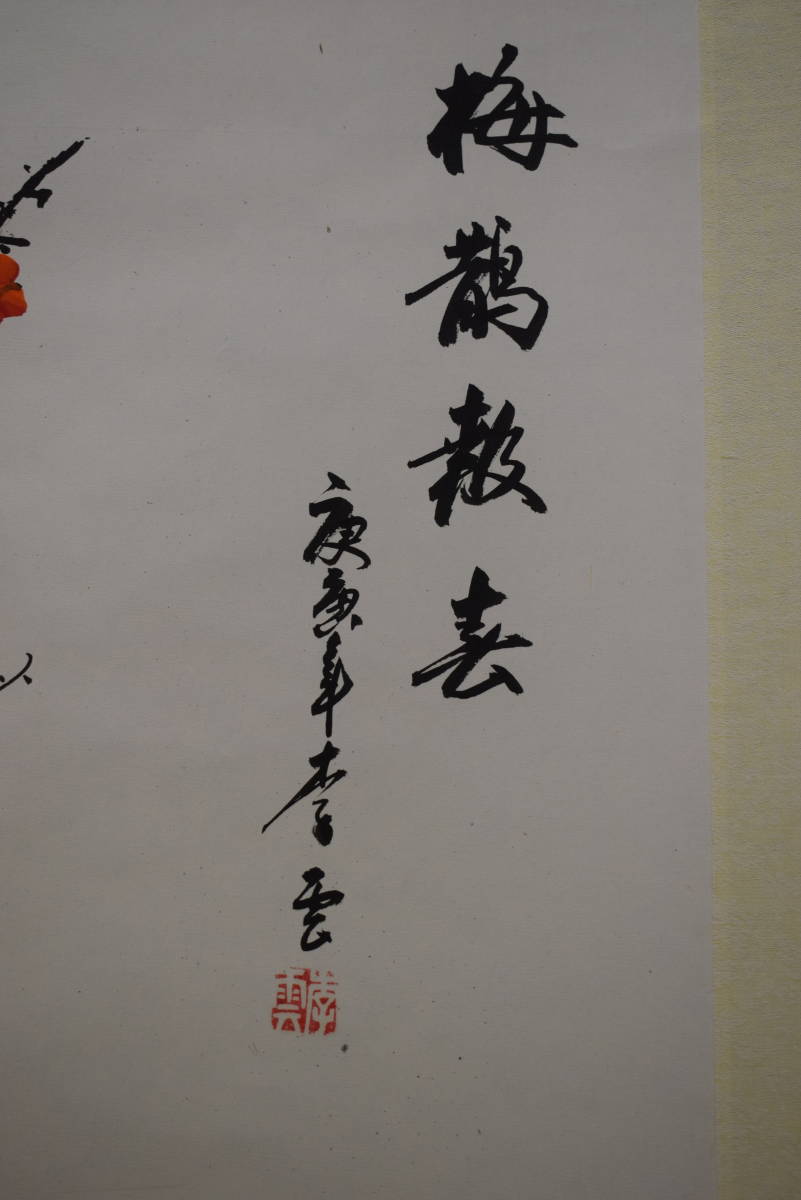 梅鵲報春
庚寅年李雲
李雲